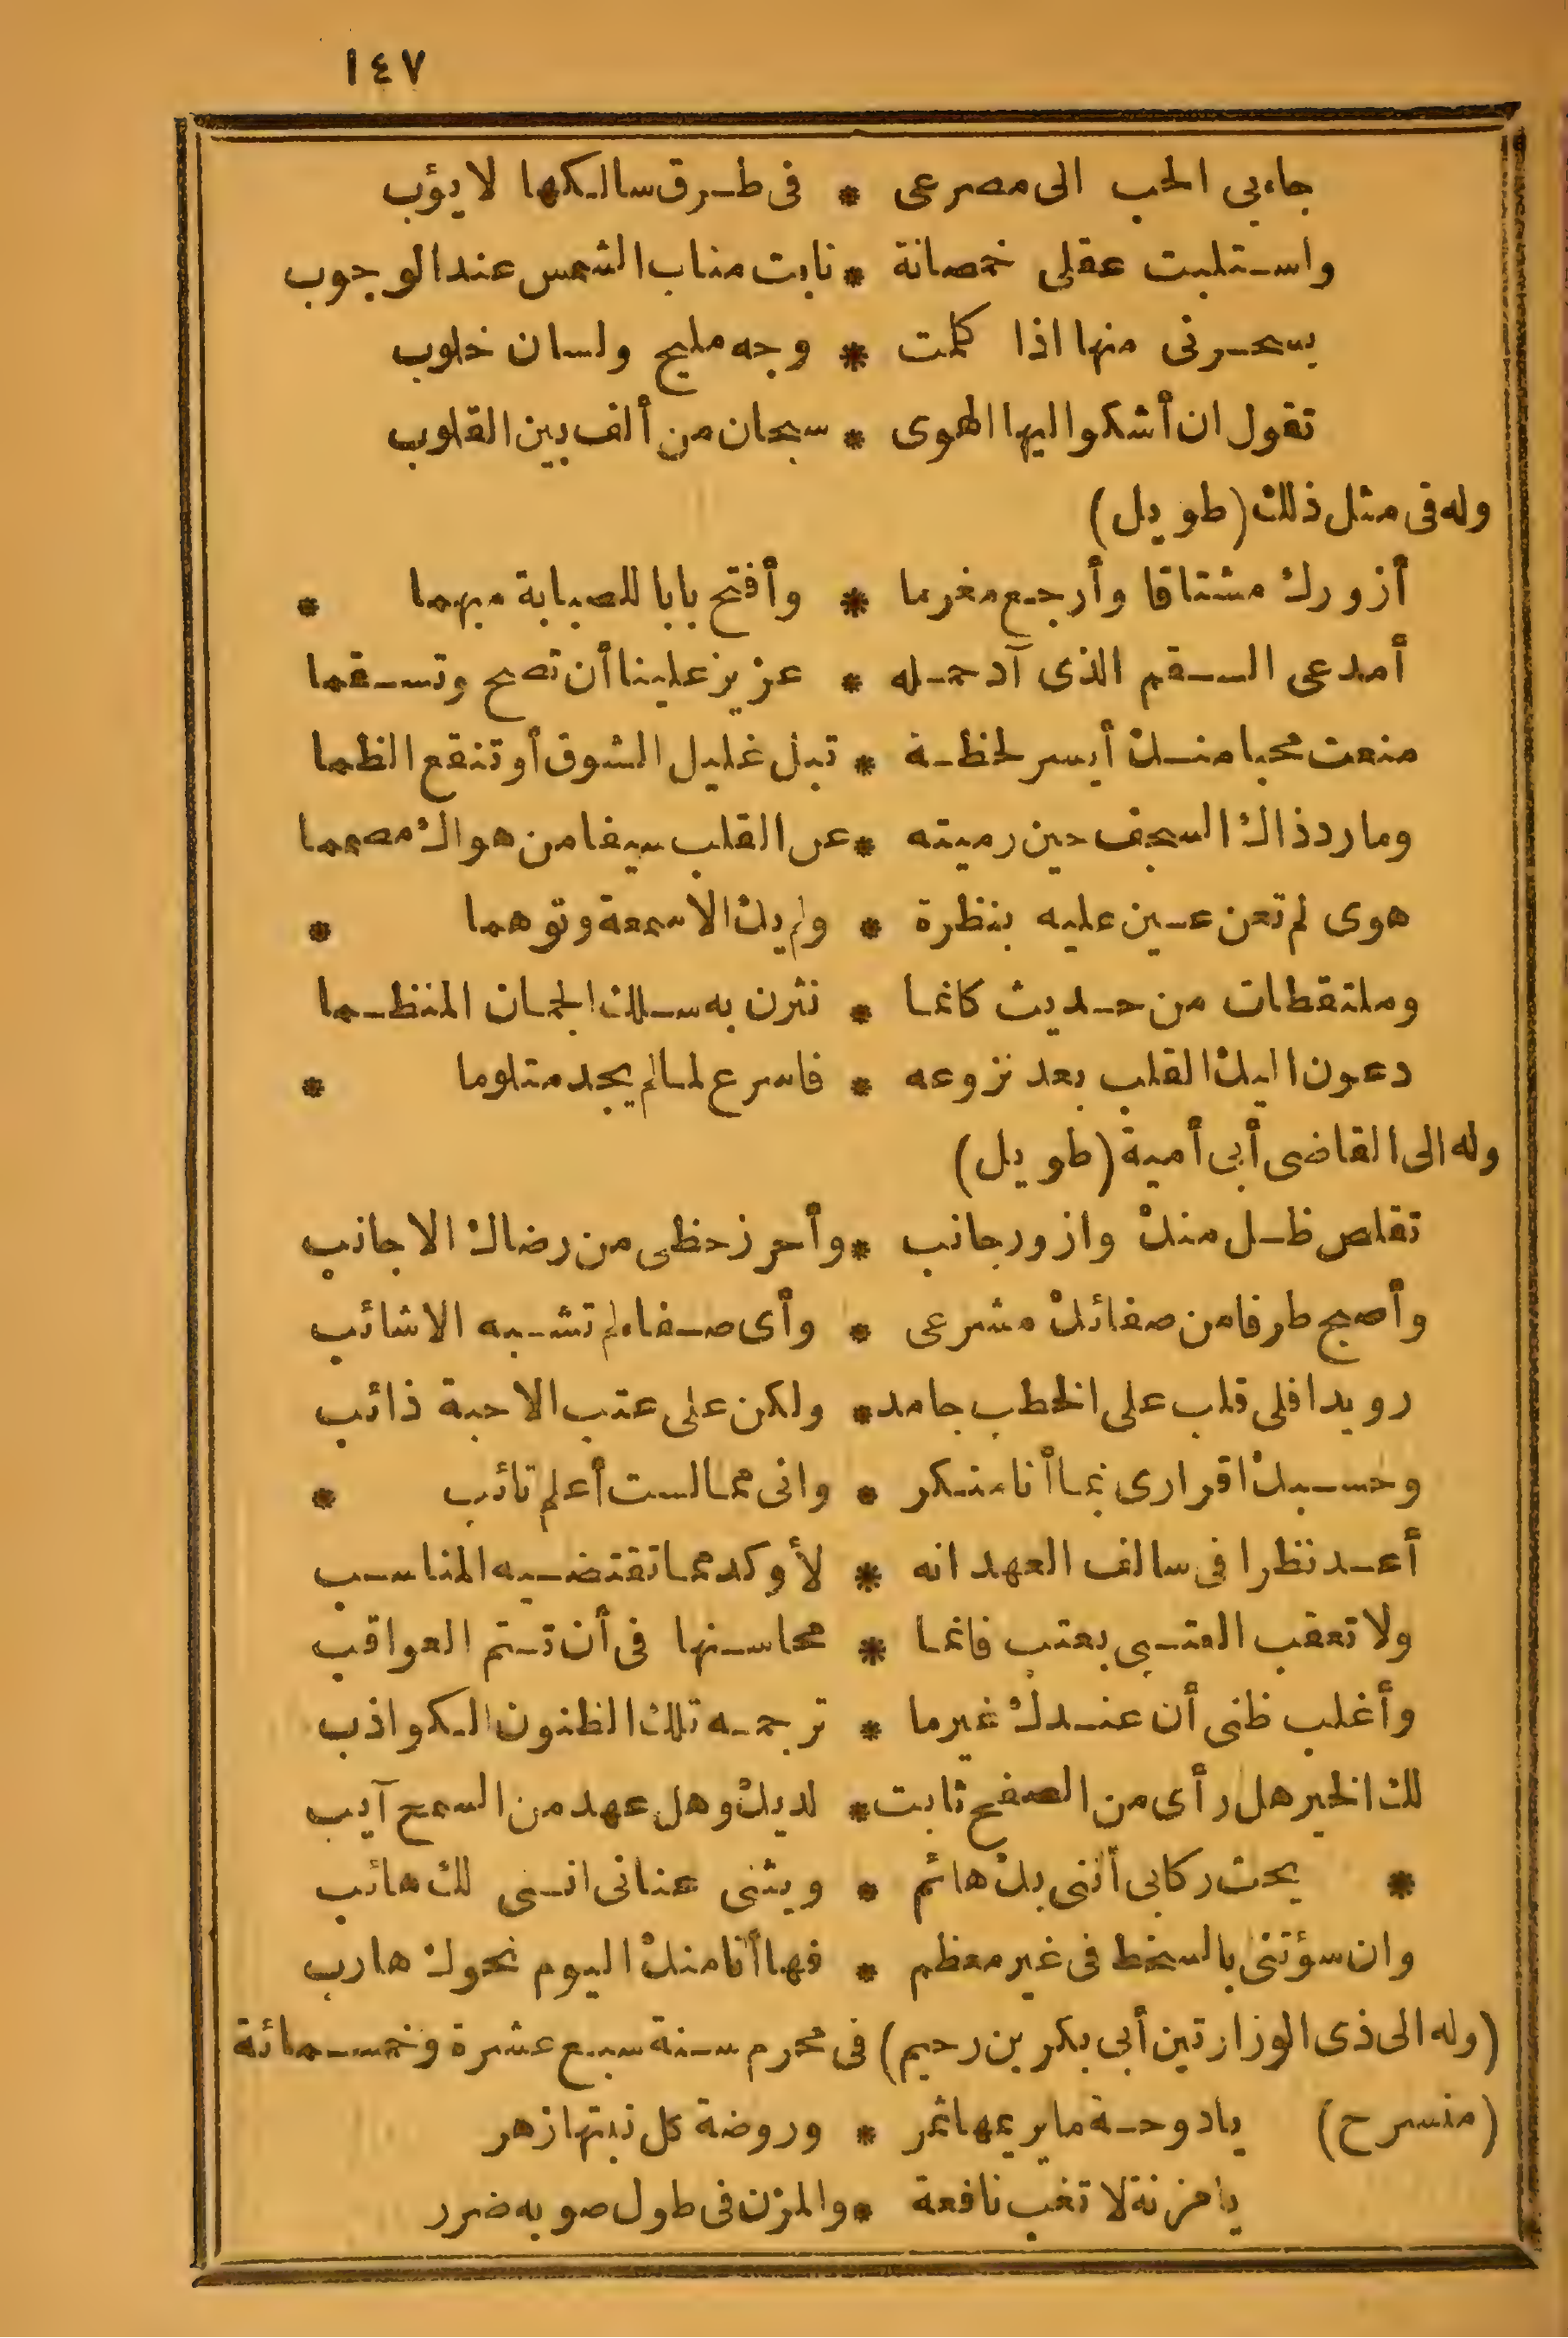 ١٤٧
جاء بى الحب الى مصرعى * فى طرق سالكها لا يؤب
واستلبت عقلى خمصانة * نابت مناب الشمس عند الوجوب
يسحرنى منها اذا كلمت * وجه مليح ولسان خلوب
تقول ان أشكو اليها الهوى * سبحان من ألف بين القلوب
وله فى مثل ذلك (طويل)
أزورك مشتاقا وأرجع مغرما * وأفتح بابا للصبابة مبهما *
أمدعى السقم الذى آد حمله * عزيز علينا أن تصح وتسقما
منعت محبا منك أيسر لحظة * تبل غليل الشوق أو تنقع الظما
وما رد ذاك السجف حين رميته * عن القلب سيفا من هواك مصمما
هوى لم تعن عين عليه بنظرة * ولم يك الا سمعة وتوهما *
وملتقطات من حديث كانما * نثرن به سلك الجمان المنظما
دعون اليك القلب بعد نزوعه * فاسرع لما لم يجد متلوما *
وله الى القاضى أبى أمية (طويل)
تقلص ظل منك وازور جانب * وأحرز حظى من رضاك الاجانب
وأصبح طرفا من صفائك مشرعى * وأى صفاء لم تشبه الاشائب
رويدا فلى قلب على الخطب جامد * ولكن على عتب الاحبة ذائب
وحسبك اقرارى بما أنا منكر * وانى مما لست أعلم تائب *
أعد نظرا فى سالف العهد انه * لأوكد مما تقتضيه المناسب
ولا تعقب العتبى بعتب فانما * محاسنها فى أن تتم العواقب
وأغلب ظنى أن عندك غير ما * ترجمه تلك الظنون الكواذب
لك الخير هل رأى من الصفح ثابت * لديك وهل عهد من السمح آيب
* يحث ركابى أننى بك هائم * ويثنى عنانى اننى لك هائب
وان سؤتنى بالسخط فى غير معظم * فها أنا منك اليوم نحوك هارب
(وله الى ذى الوزارتين أبى بكر بن رحيم) فى محرم سنة سبع عشرة وخمسمائة
(منسرح) يا دوحة ما يريمها ثمر * وروضة كل نبتها زهر
يا مزنة لا تغب نافعة * والمزن فى طول صوبه ضرر